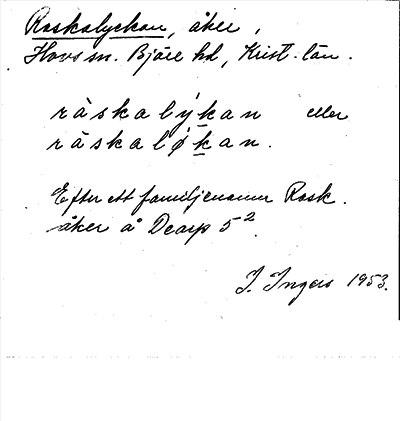 Raskalyckan, åker,
Hovs sn. Bjäre hd, Krist. län.
ràskalýkan eller
ràskaløkan.
Efter ett familjenamn Rask.
åker å Dearp 5².
I. Ingers 1953.